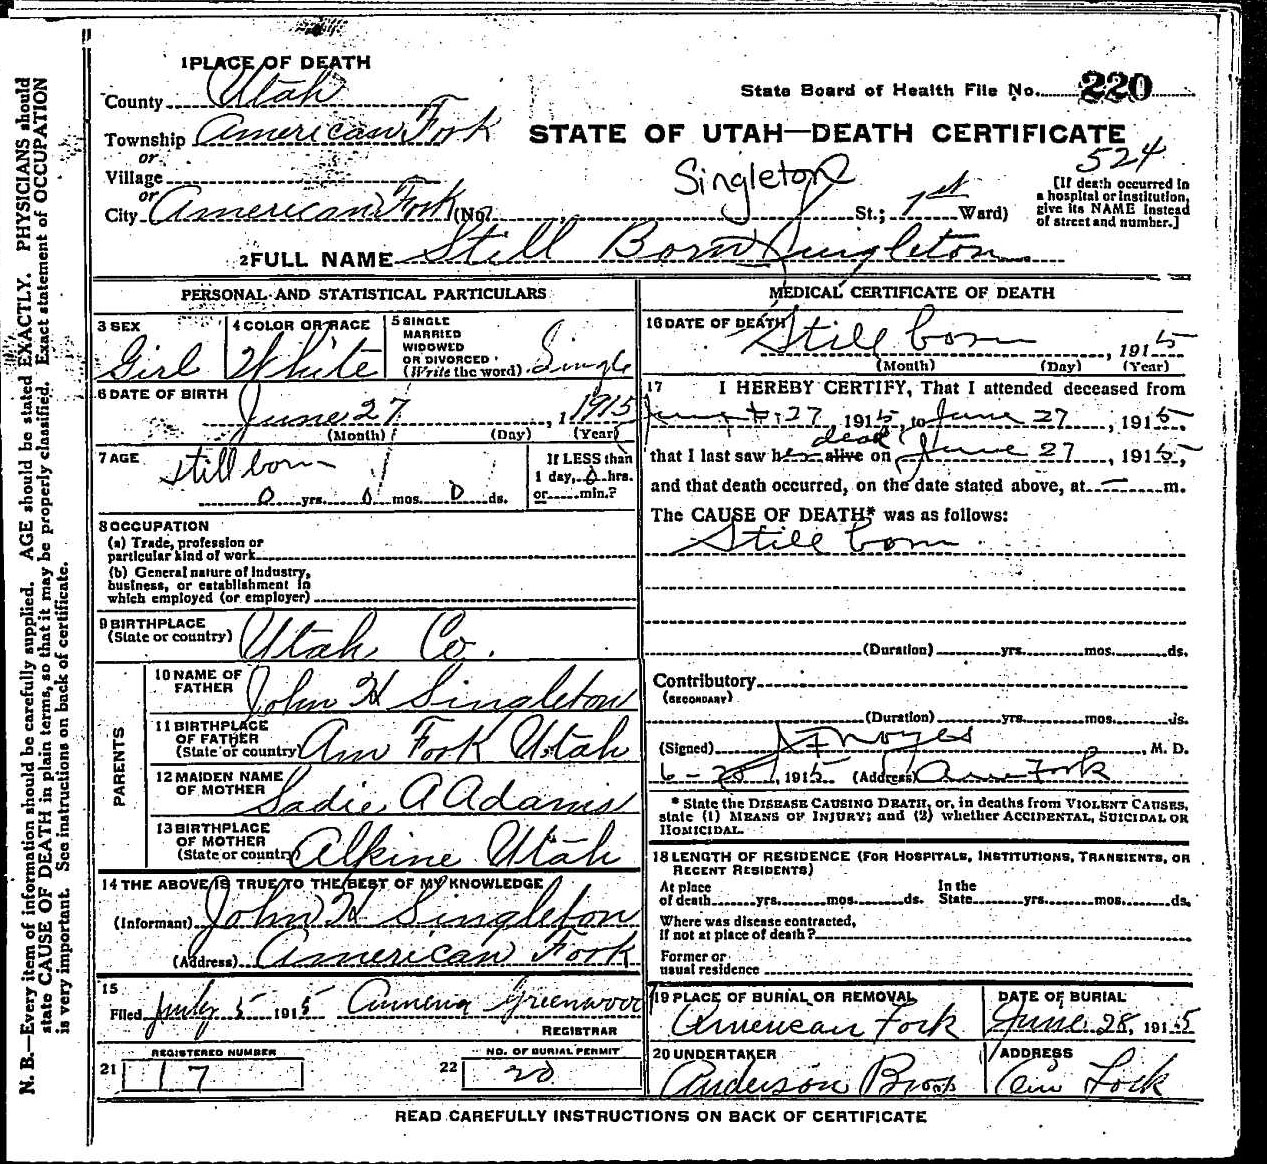 1 PLACE OF DEATH
County Utah
State Board of Health File No. 220
Township American Fork
STATE OF UTAH—DEATH CERTIFICATE
or
524
Village
Singleton
or
City American Fork (No. St.; 1st Ward)
[If death occurred in a hospital or institution, give its NAME instead of street and number.]
2 FULL NAME Still Born Singleton
PERSONAL AND STATISTICAL PARTICULARS
3 SEX Girl
4 COLOR OR RACE White
5 SINGLE MARRIED WIDOWED OR DIVORCED (Write the word) Single
6 DATE OF BIRTH June 27, 1915
(Month) (Day) (Year)
7 AGE Still born
0 yrs. 0 mos. 0 ds.
If LESS than 1 day, 0 hrs. or min.?
8 OCCUPATION
(a) Trade, profession or particular kind of work
(b) General nature of industry, business, or establishment in which employed (or employer)
9 BIRTHPLACE (State or country) Utah Co.
PARENTS
10 NAME OF FATHER John H Singleton
11 BIRTHPLACE OF FATHER (State or country) Am Fork Utah
12 MAIDEN NAME OF MOTHER Sadie A Adams
13 BIRTHPLACE OF MOTHER (State or country) Alpine Utah
14 THE ABOVE IS TRUE TO THE BEST OF MY KNOWLEDGE
(Informant) John H Singleton
(Address) American Fork
15
Filed July 5 1915 Armenia Greenwood
REGISTRAR
21 REGISTERED NUMBER 17
22 NO. OF BURIAL PERMIT 20
MEDICAL CERTIFICATE OF DEATH
16 DATE OF DEATH Still born, 1915
(Month) (Day) (Year)
17 I HEREBY CERTIFY, That I attended deceased from
June 27 1915, to June 27, 1915
dead
that I last saw her alive on June 27, 1915,
and that death occurred, on the date stated above, at — m.
The CAUSE OF DEATH* was as follows:
Still born
(Duration) yrs. mos. ds.
Contributory
(SECONDARY)
(Duration) yrs. mos. ds.
(Signed) Noyes, M. D.
6-28, 1915 (Address) Am Fork
* State the DISEASE CAUSING DEATH, or, in deaths from VIOLENT CAUSES,
state (1) MEANS OF INJURY; and (2) whether ACCIDENTAL, SUICIDAL OR
HOMICIDAL.
18 LENGTH OF RESIDENCE (FOR HOSPITALS, INSTITUTIONS, TRANSIENTS, OR
RECENT RESIDENTS)
At place of death yrs. mos. ds. In the State yrs. mos. ds.
Where was disease contracted,
if not at place of death?
Former or
usual residence
19 PLACE OF BURIAL OR REMOVAL American Fork
DATE OF BURIAL June 28, 1915
20 UNDERTAKER Anderson Bros
ADDRESS Am Fork
READ CAREFULLY INSTRUCTIONS ON BACK OF CERTIFICATE
N. B.—Every item of information should be carefully supplied. AGE should be stated EXACTLY. PHYSICIANS should
state CAUSE OF DEATH in plain terms, so that it may be properly classified. Exact statement of OCCUPATION
is very important. See instructions on back of certificate.